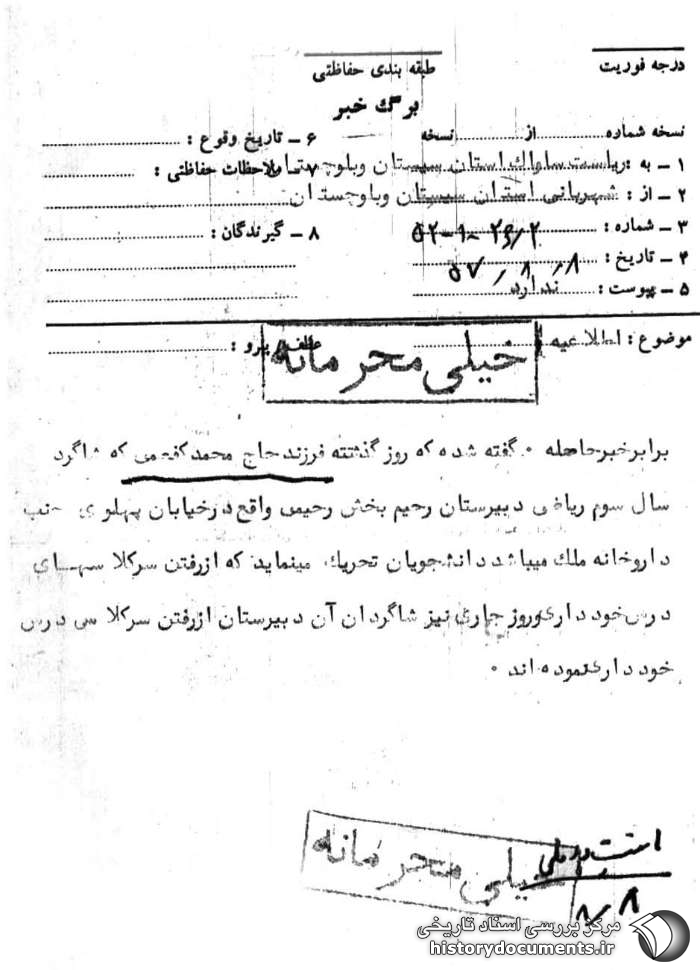 درجه فوریت
طبقه بندی حفاظتی
برگ خبر
نسخه شماره ........ از ........ نسخه
۱ ـ به : ریاست ساواك استان سیستان وبلوچستان
۲ ـ از : شهربانی استان سیستان وبلوچستان
۳ ـ شماره :
۴ ـ تاریخ : ۵۷/۸/۸
۵ ـ پیوست : ندارد
۶ ـ تاریخ وقوع :
۷ ـ ملاحظات حفاظتی :
۸ ـ گیرندگان :
موضوع : اطلاعیه
عطف پیرو :
خیلی محرمانه
برابر خبر حاصله ۰ گفته شده که روز گذشته فرزند حاج محمد که شاگرد
سال سوم ریاضی دبیرستان رحیم بخش رحیمی واقع درخیابان پهلوی جنب
داروخانه ملك میباشد دانشجویان تحریك مینماید که ازرفتن سرکلاسهای
درس خود داری وروز جاری نیز شاگردان آن دبیرستان ازرفتن سرکلاسی درس
خود داری نموده اند ۰
خیلی محرمانه
۸/۸
مرکز بررسی اسناد تاریخی
historydocuments.ir